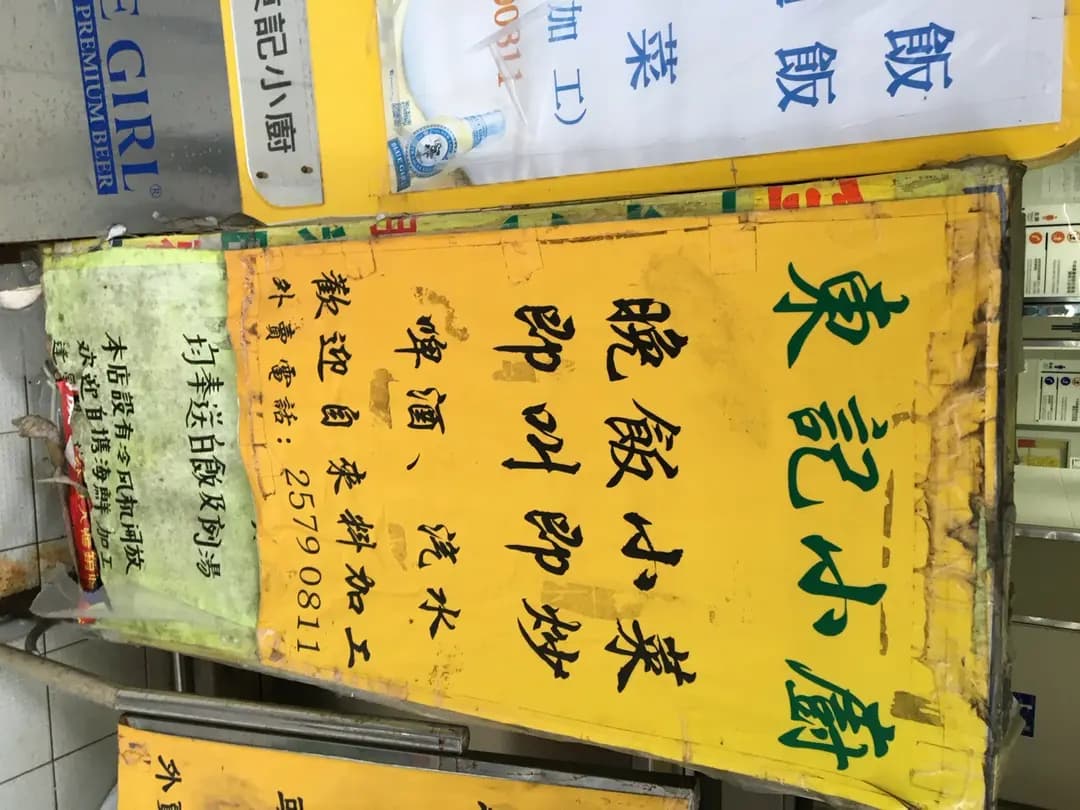 東記小廚
晚飯小菜
即叫即炒
啤酒、汽水
歡迎自來料加工
外賣電話：25790811
均奉送白飯及例湯
本店設有冷风机開放
欢迎自携海鮮加工
飯
飯
菜
加工)
00811
BLUE GIRL
記小廚
E GIRL®
PREMIUM BEER
外